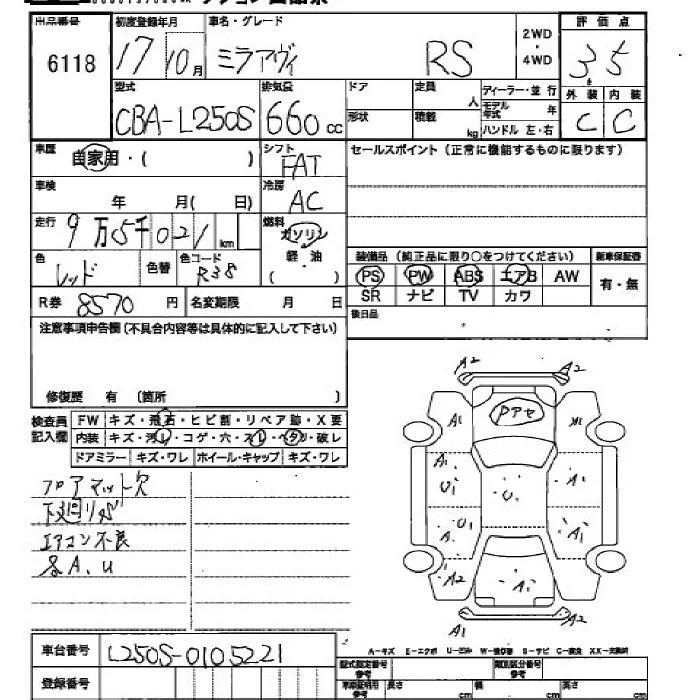 出品番号 初度登録年月 車名・グレード 評価点
6118 17 10月 ミラアヴィ RS 2WD・4WD 3.5
型式 排気量 ドア 定員 人 ディーラー・並行 外装 内装
CBA-L250S 660cc 形状 積載 kg モデル年式 年 ハンドル 左・右 C C
車歴 自家用・( ) シフト FAT セールスポイント(正常に機能するものに限ります)
車検 年 月( 日) 冷房 AC
走行 9万5千021km 燃料 ガソリン 軽・油 ( )
色 レッド 色替 色コード R38 装備品(純正品に限り○をつけてください) 新車保証書
PS PW ABS エアB AW 有・無
R券 8570円 名変期限 月 日 SR ナビ TV カワ
注意事項申告欄(不具合内容等は具体的に記入して下さい) 後日品
修復歴 有 (箇所 )
検査員記入欄 FW キズ・飛石・ヒビ割・リペア跡・X要
内装 キズ・汚レ・コゲ・穴・スレ・ヘタリ・破レ
ドアミラー キズ・ワレ ホイール・キャップ キズ・ワレ
フロアマット欠
下廻りサビ
エアコン不良
A. U
A2 A2
A1 Pアセ A1
A1 U1 U A1
U1 A1
A2 A1
A1 A2
A-キズ E-エクボ U-凹み W-補修跡 S-サビ C-腐食 XX-交換済
車台番号 L250S-0105221 型式指定番号 参考 類別区分番号 参考
登録番号 車庫証明用 参考 長さ cm 幅 cm 高さ cm